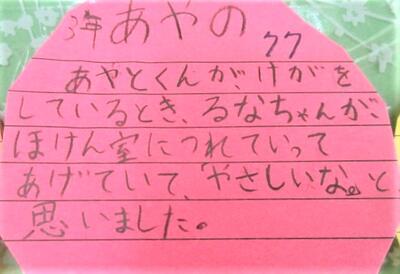 3年あやの
クク
あやとくんが、けがを
しているとき、るなちゃんが、
ほけん室につれていって
あげていて、「やさしいな。」と
思いました。